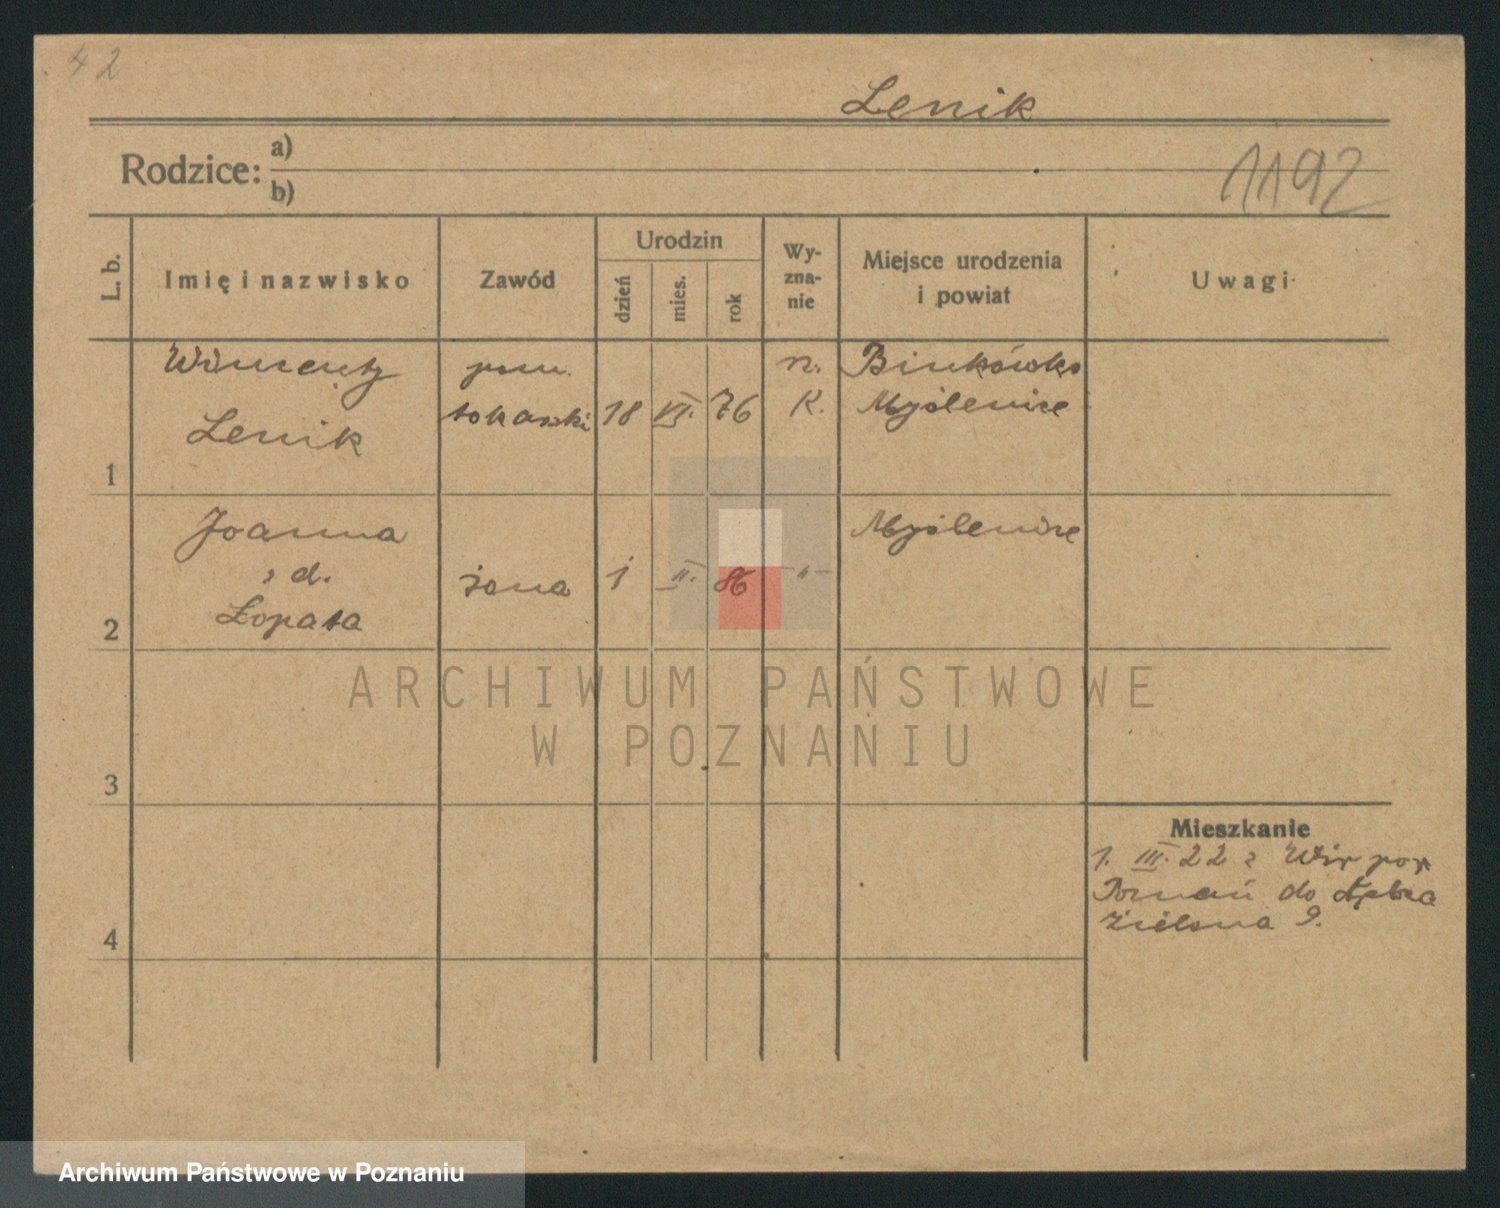 42
Lenik
Rodzice: a)
b)
1192
L. b.
Imię i nazwisko
Zawód
Urodzin
dzień
mies.
rok
Wy-
zna-
nie
Miejsce urodzenia
i powiat
Uwagi
1
Wincenty
Lenik
pom.
tokarski
18 VI. 76
r.
K.
Binkówka
Myślenice
2
Joanna
z d.
Łopata
żona
1 II. 86 -"-
Myślenice
3
4
Mieszkanie
1. III. 22 z Wir pow
Poznań do
Zielona 9.
ARCHIWUM PAŃSTWOWE
W POZNANIU
Archiwum Państwowe w Poznaniu